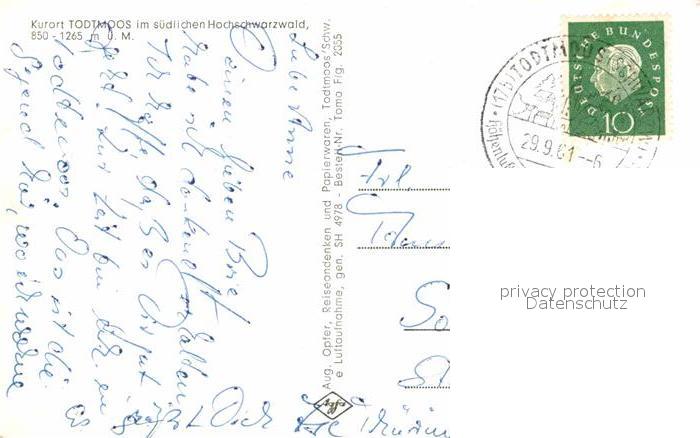 Kurort TODTMOOS im südlichen Hochschwarzwald,
850 - 1265 m ü. M.
Liebe Anne
Deinen lieben Brief
habe ich dankend erhalten
Ich hoffe daß es Dir gut
geht. Zur Zeit bin ich in
Todtmoos. Das ist die
Gegend hier, wo ich
Es grüßt Dich
Aug. Opfer, Reiseandenken und Papierwaren, Todtmoos/Schw.
e Luftaufnahme, gen. SH 4978 - Bestell-Nr. Tomo Flg. 2055
Agfa
Frl.
DEUTSCHE BUNDESPOST
10
(17b) TODTMOOS
29.9.61--6
privacy protection
Datenschutz